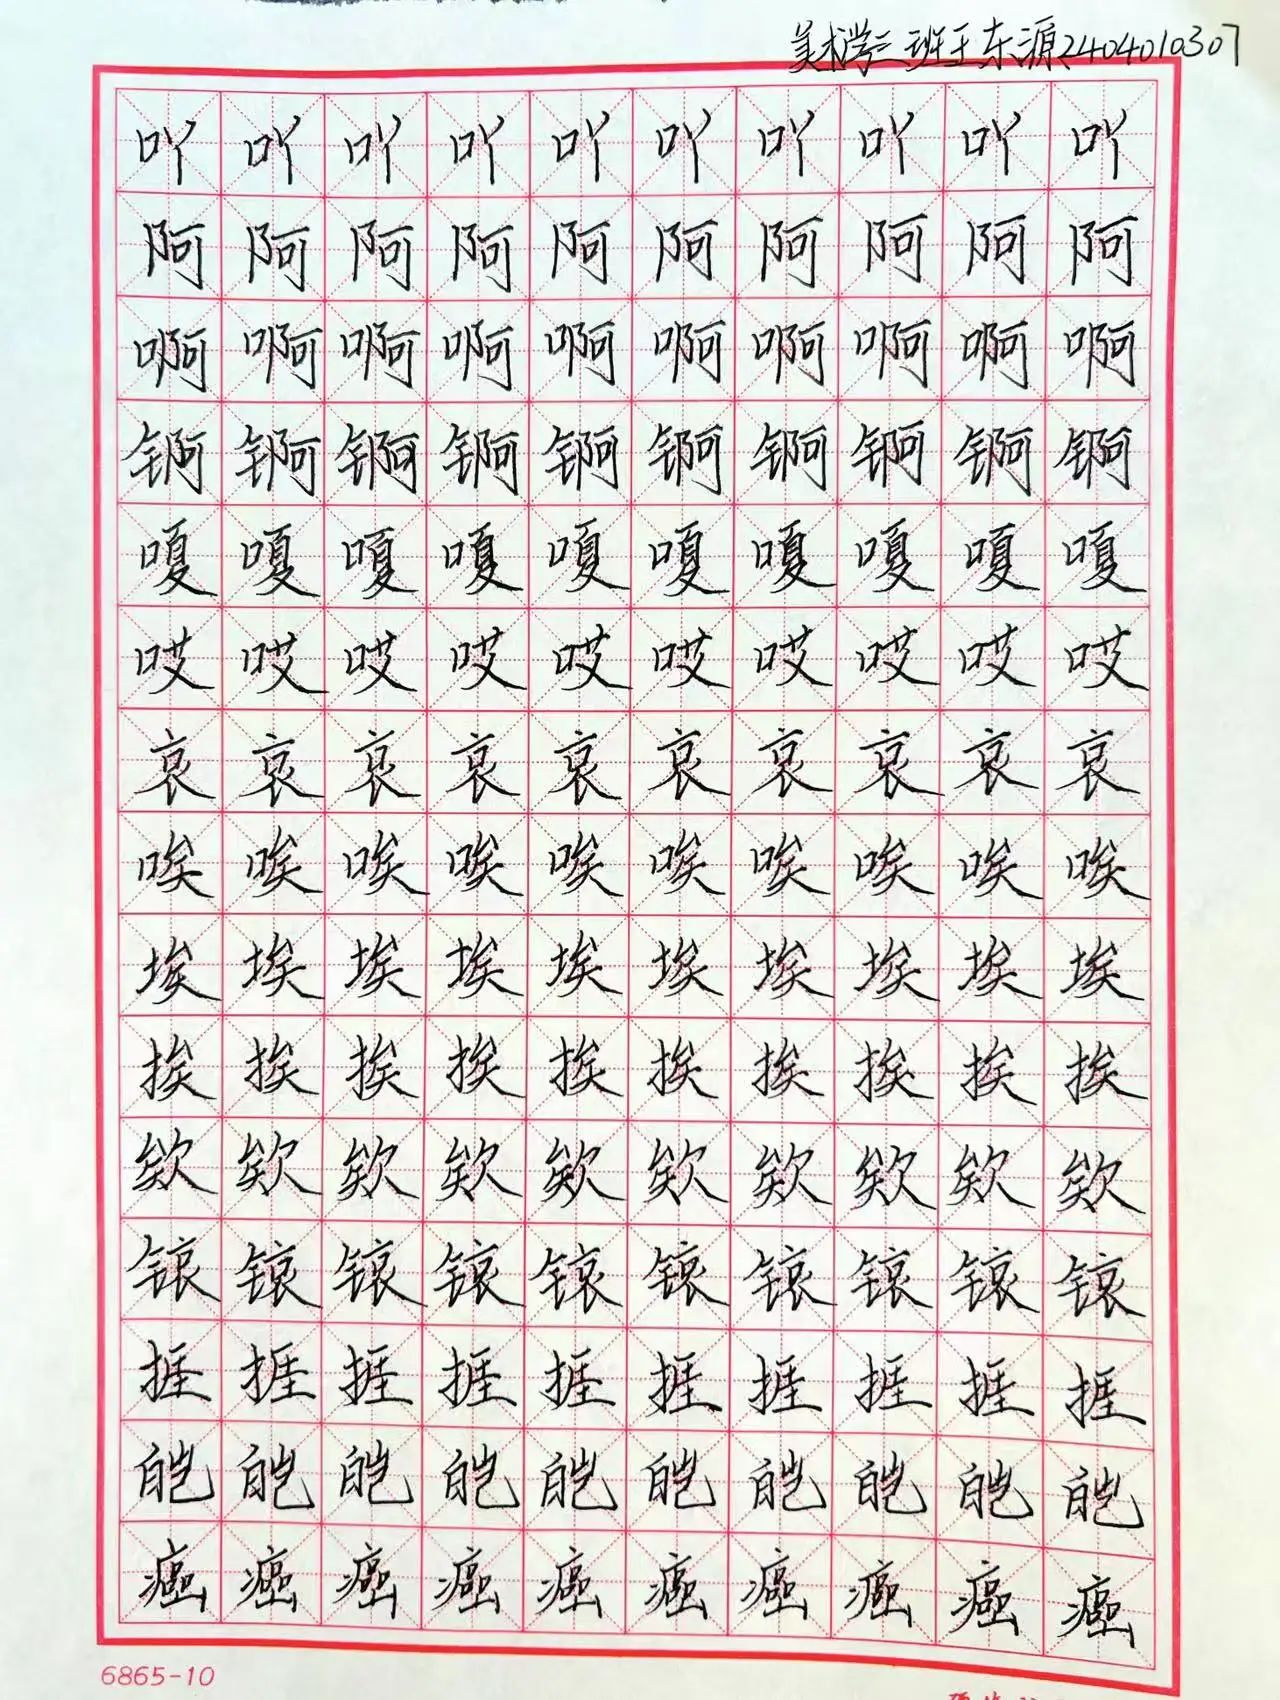 美术学三班王东源2404010307
吖吖吖吖吖吖吖吖吖吖
阿阿阿阿阿阿阿阿阿阿
啊啊啊啊啊啊啊啊啊啊
锕锕锕锕锕锕锕锕锕锕
嗄嗄嗄嗄嗄嗄嗄嗄嗄嗄
哎哎哎哎哎哎哎哎哎哎
哀哀哀哀哀哀哀哀哀哀
唉唉唉唉唉唉唉唉唉唉
埃埃埃埃埃埃埃埃埃埃
挨挨挨挨挨挨挨挨挨挨
欸欸欸欸欸欸欸欸欸欸
锿锿锿锿锿锿锿锿锿锿
捱捱捱捱捱捱捱捱捱捱
皑皑皑皑皑皑皑皑皑皑
癌癌癌癌癌癌癌癌癌癌
6865-10